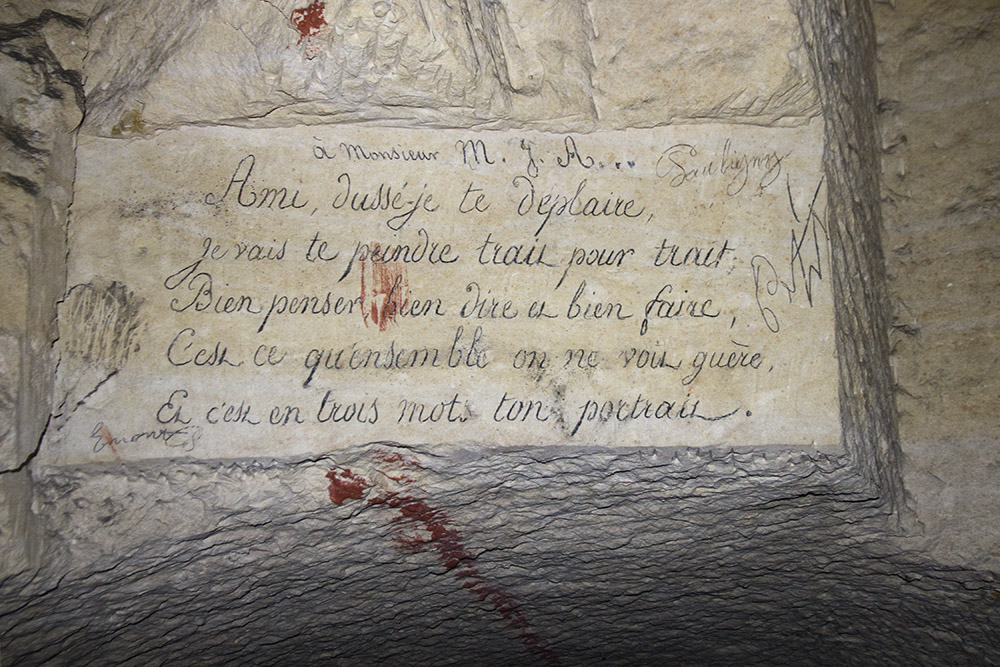 à Monsieur M. J. A...
Ami, dussé-je te déplaire,
Je vais te peindre trait pour trait;
Bien penser, bien dire et bien faire,
C'est ce qu'ensemble on ne voit guère,
Et c'est en trois mots ton portrait.